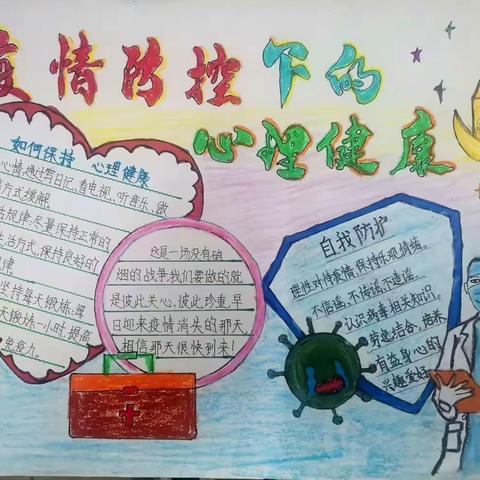 疫情防控下的
心理健康
如何保持 心理健康
心情,通过写日记、看电视、听音乐、做
方式缓解。
规律:尽量保持正常的
生活方式,保持良好的
规律。
坚持每天锻炼,每
天锻炼一小时,提高
免疫力。
这是一场没有硝
烟的战争,我们要做的就
是彼此关心、彼此珍重,早
日迎来疫情消失的那天,
相信那天很快到来!
自我防护
理性对待疫情,保持乐观情绪。
不信谣、不传谣、不造谣。
认识病毒相关知识。
劳逸结合,培养
有益身心的
兴趣爱好